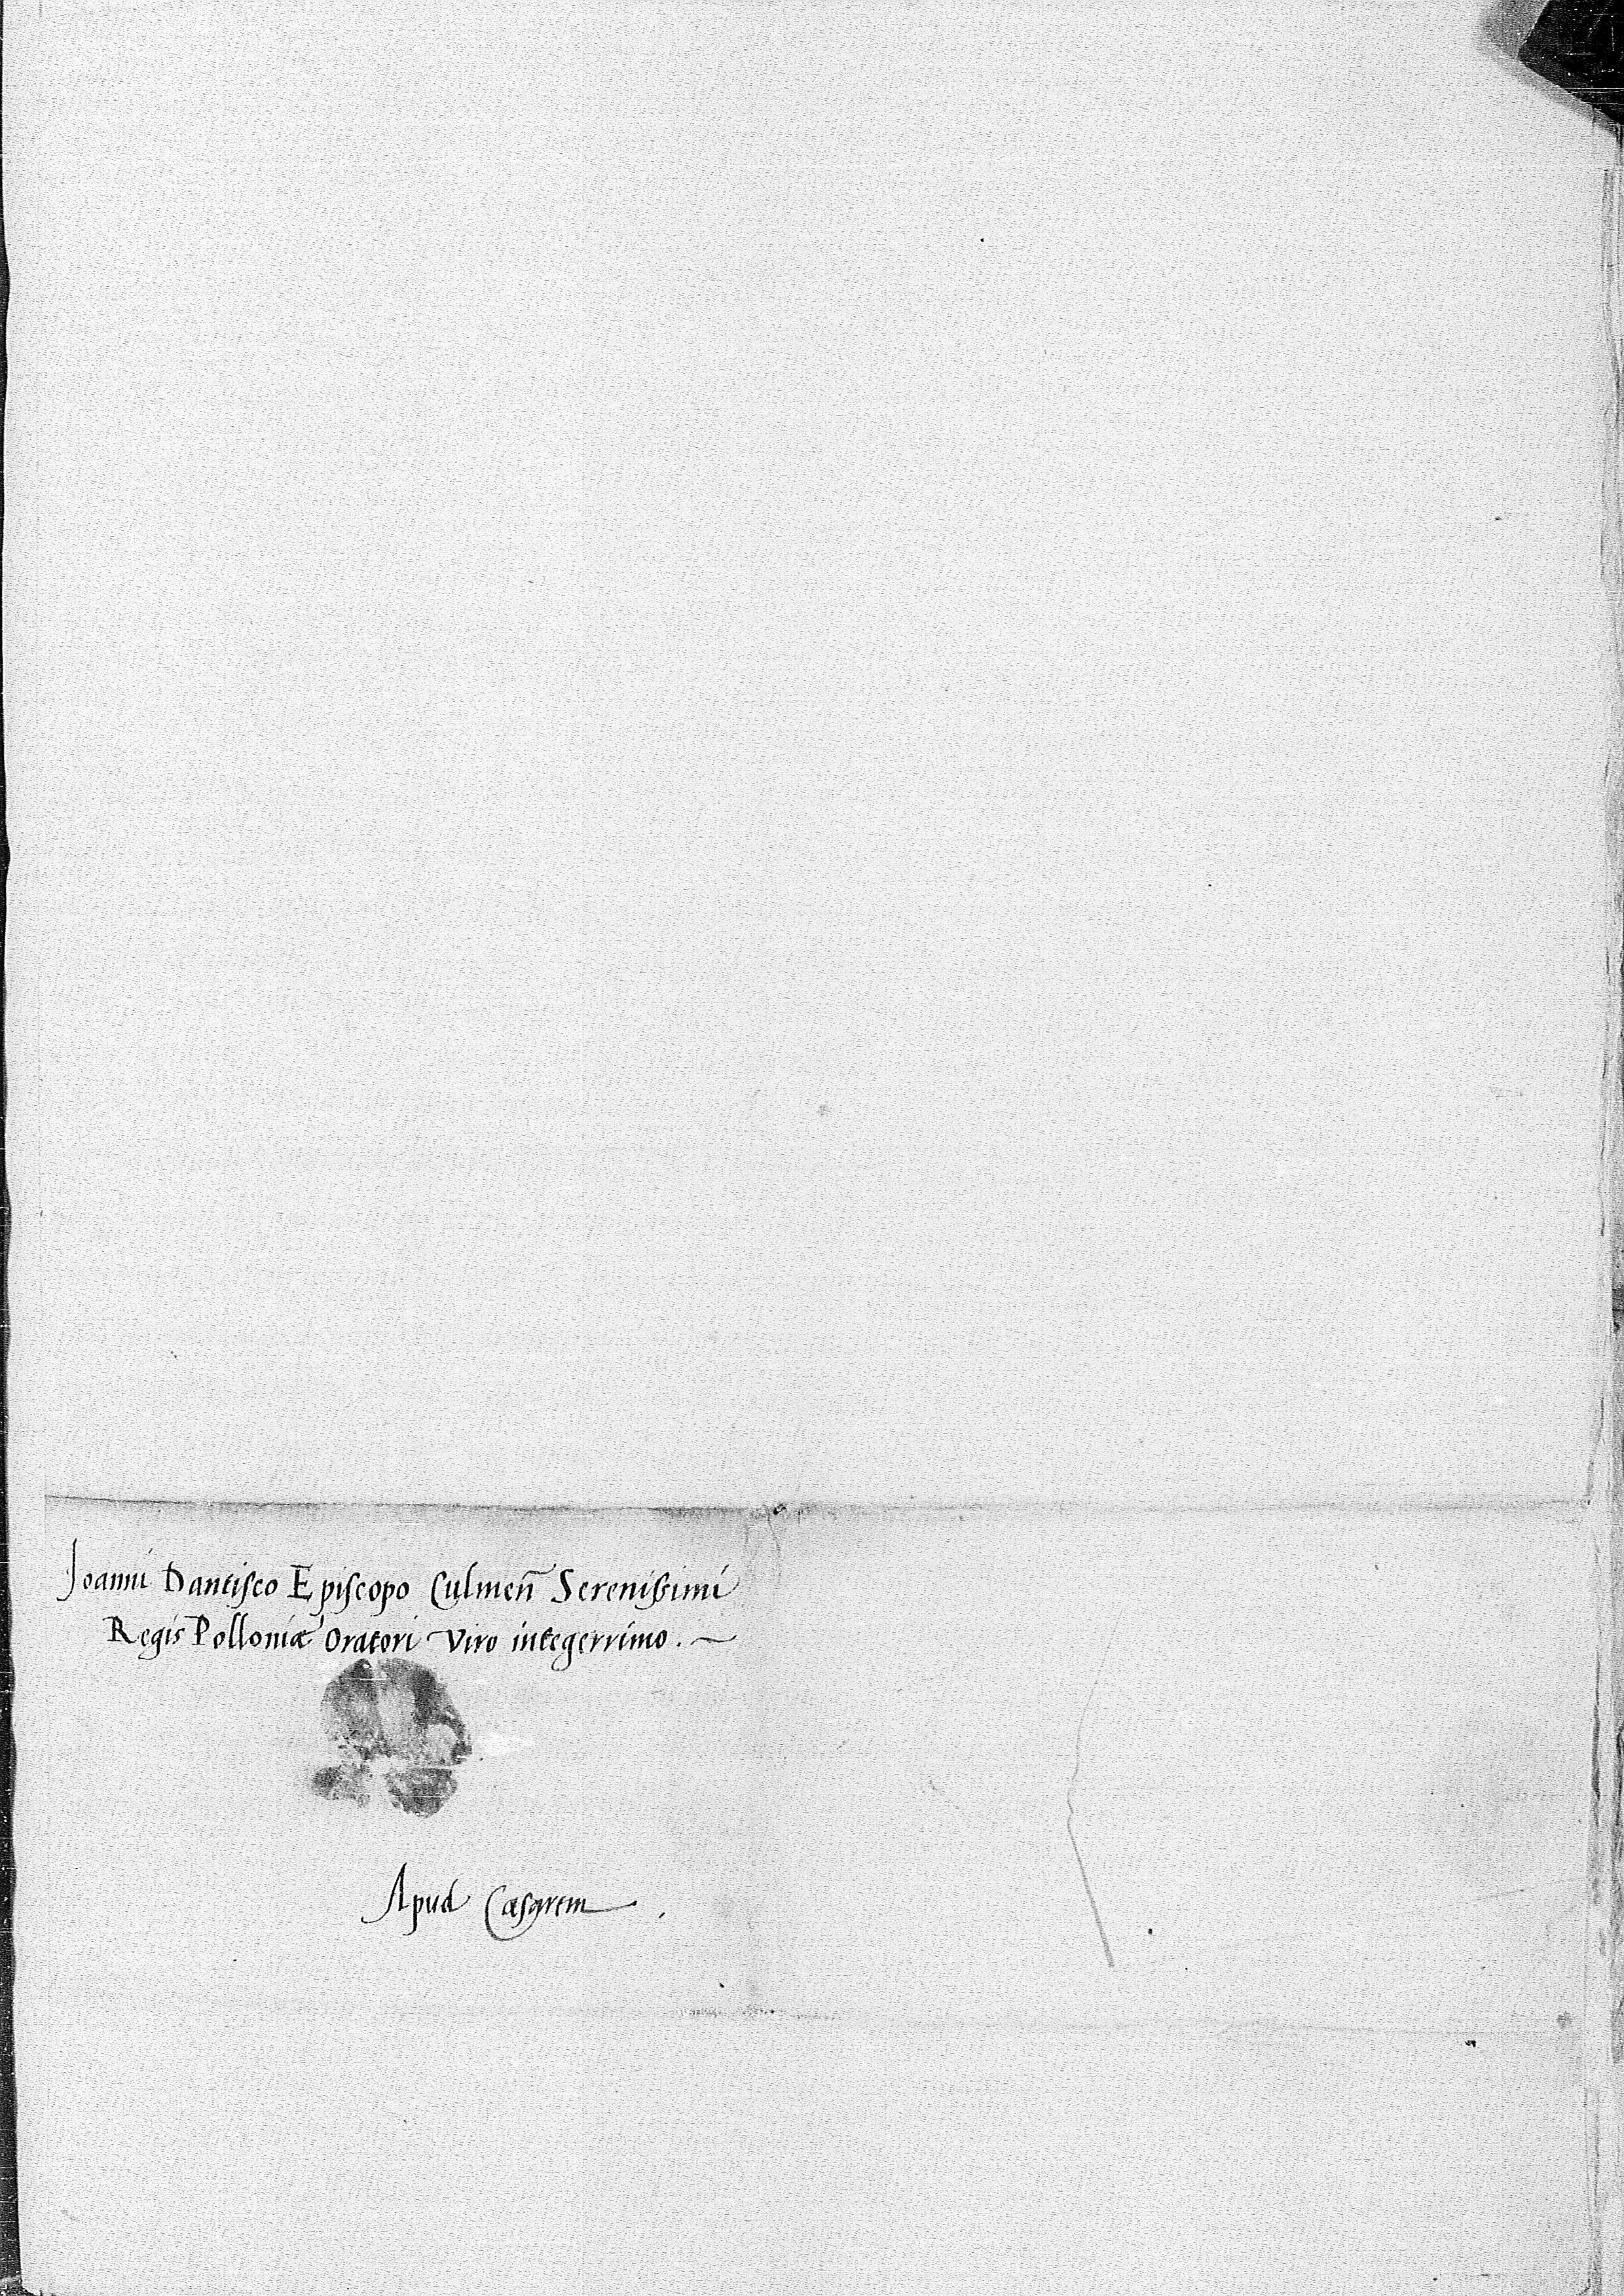 Joanni Dantisco Episcopo Culmen̄ Serenissimi
Regis Polloniæ Oratori Viro integerrimo.
Apud Cæsarem.